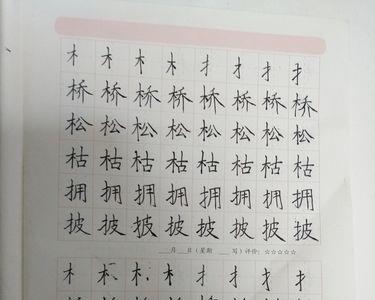 木 木 木 木 扌 扌 扌 扌
桥 桥 桥 桥 桥 桥 桥 桥
松 松 松 松 松 松 松 松
枯 枯 枯 枯 枯 枯 枯 枯
拥 拥 拥 拥 拥 拥 拥 拥
披 披 披 披 披 披 披 披
___月___日(星期___写)评价:☆☆☆☆☆
木 木 木 木 扌 扌 扌 扌